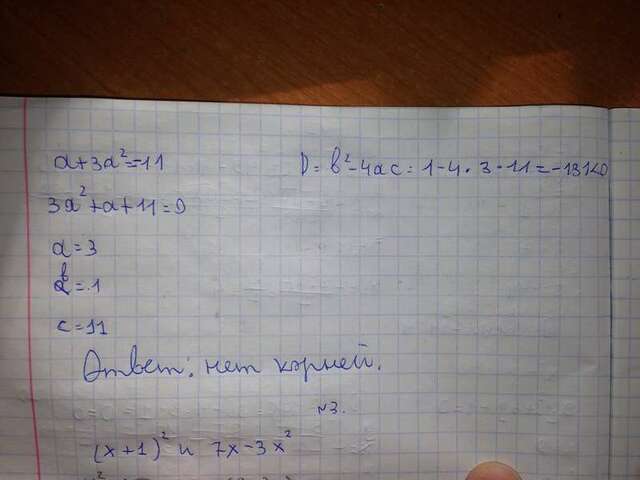 a+3a²=-11
D=b²-4ac=1-4·3·11=-131<0
3a²+a+11=0
a=3
b=1
c=11
Ответ: нет корней.
№3.
(x+1)² и 7x-3x²